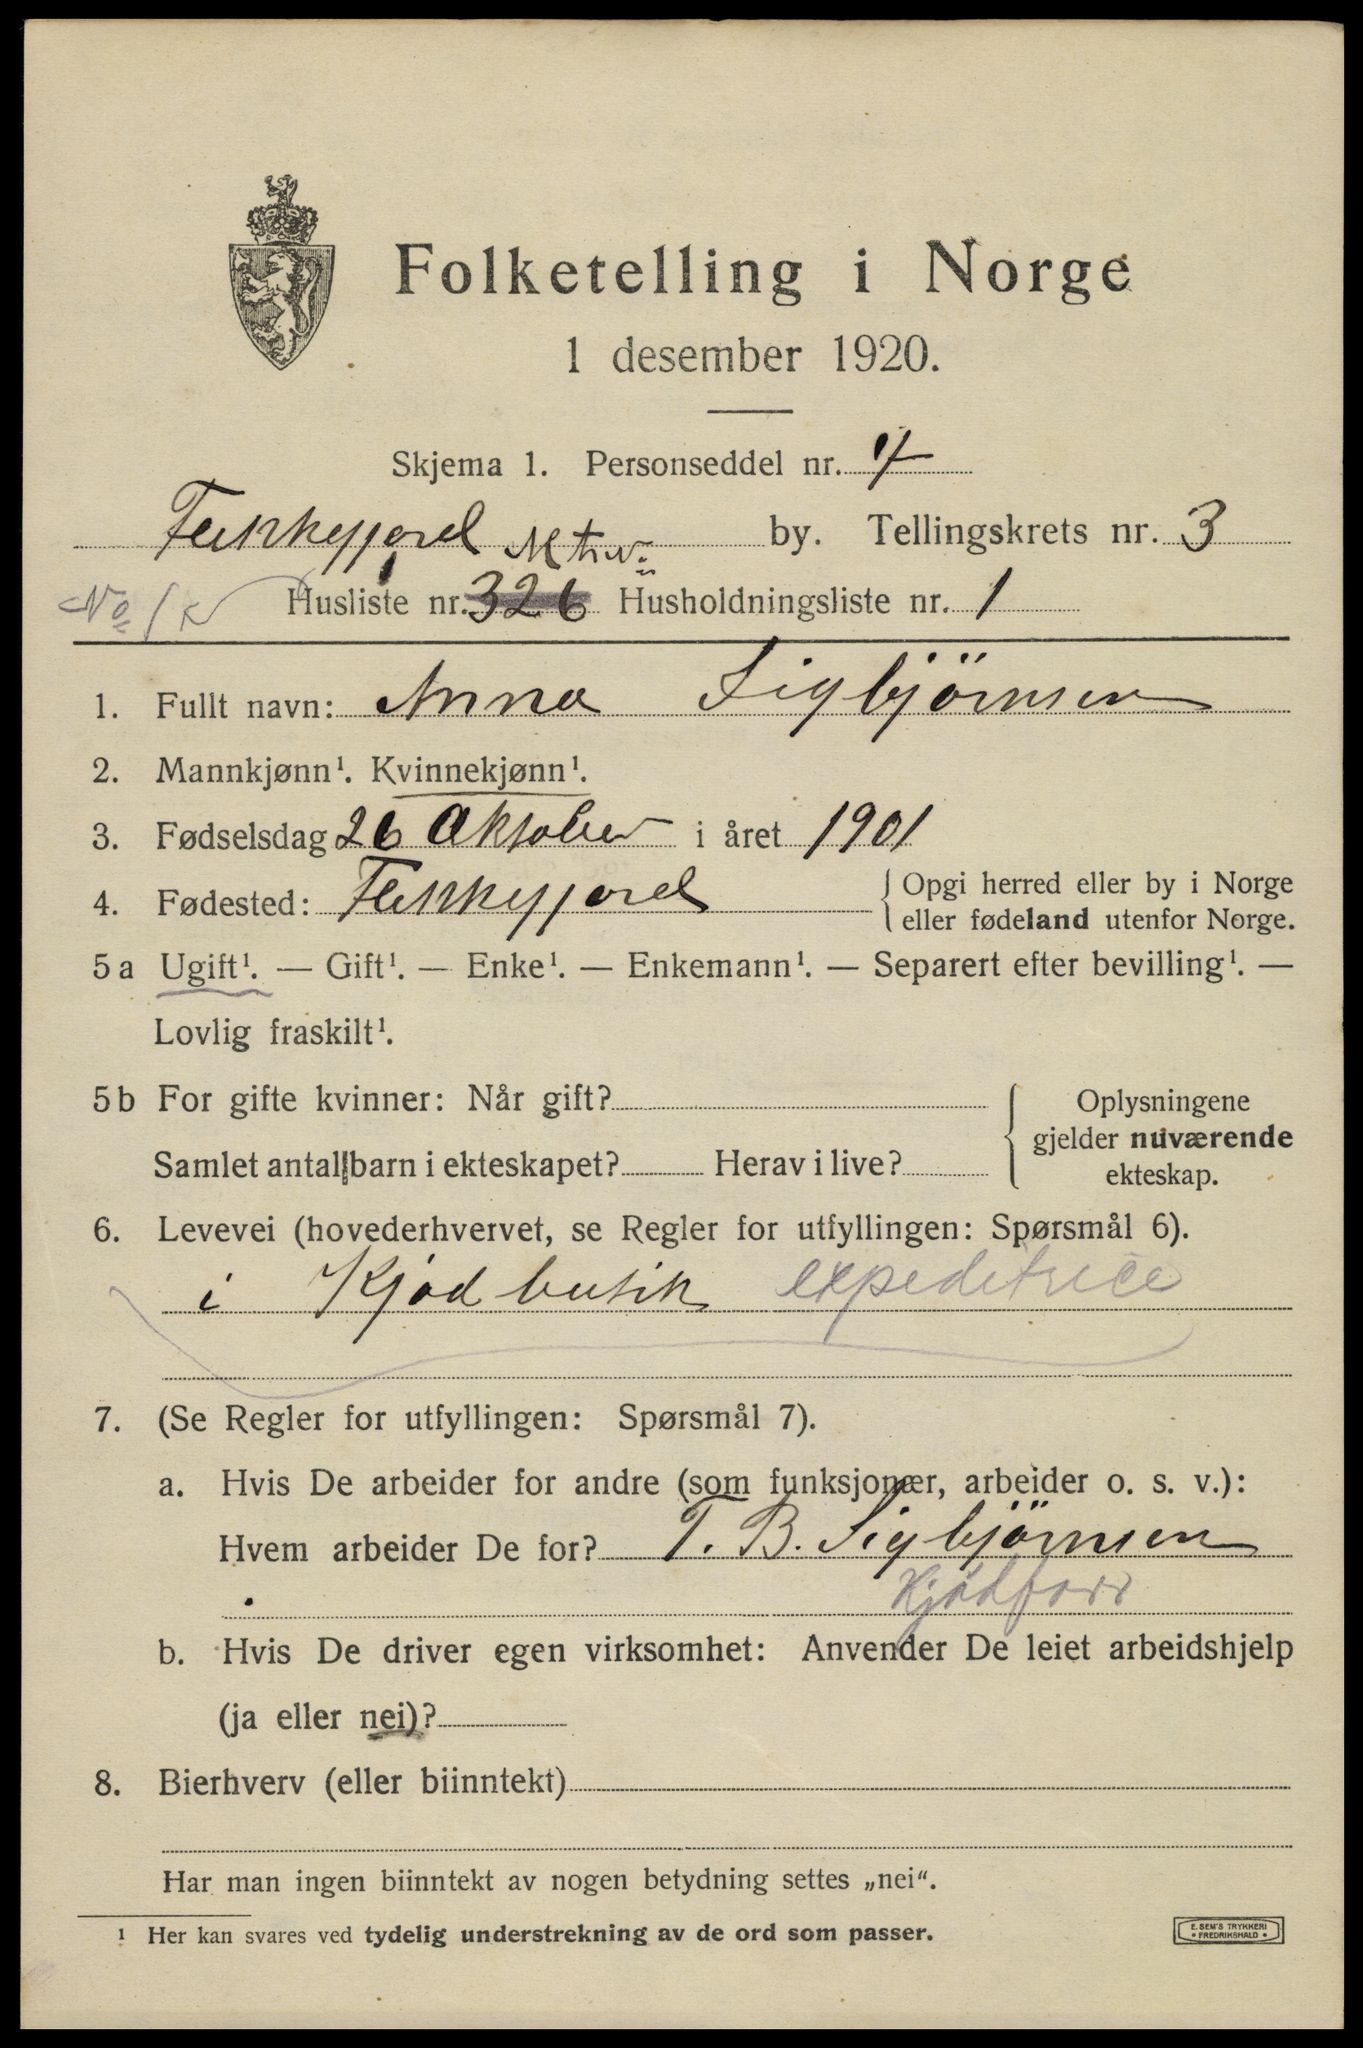 Folketelling i Norge
1 desember 1920.
Skjema 1. Personseddel nr. 4
Flekkefjord by. Tellingskrets nr. 3
No 1 Husliste nr. 326 Husholdningsliste nr. 1
1. Fullt navn: Anna Sigbjörnsen
2. Mannkjønn¹. Kvinnekjønn¹.
3. Fødselsdag 26 Oktober i året 1901
4. Fødested: Flekkefjord { Opgi herred eller by i Norge
eller fødeland utenfor Norge.
5a Ugift¹. — Gift¹. — Enke¹. — Enkemann¹. — Separert efter bevilling¹. —
Lovlig fraskilt¹.
5b For gifte kvinner: Når gift? { Oplysningene
gjelder nuværende
Samlet antal barn i ekteskapet? Herav i live?
ekteskap.
6. Levevei (hovederhvervet, se Regler for utfyllingen: Spørsmål 6).
i Kjød butik expeditrice
7. (Se Regler for utfyllingen: Spørsmål 7).
a. Hvis De arbeider for andre (som funksjonær, arbeider o. s. v.):
Hvem arbeider De for? T. B. Sigbjörnsen
Kjødforr
b. Hvis De driver egen virksomhet: Anvender De leiet arbeidshjelp
(ja eller nei)?
8. Bierhverv (eller biinntekt)
Har man ingen biinntekt av nogen betydning settes „nei“.
¹ Her kan svares ved tydelig understrekning av de ord som passer.
E. SEM'S TRYKKERI
• FREDRIKSHALD •